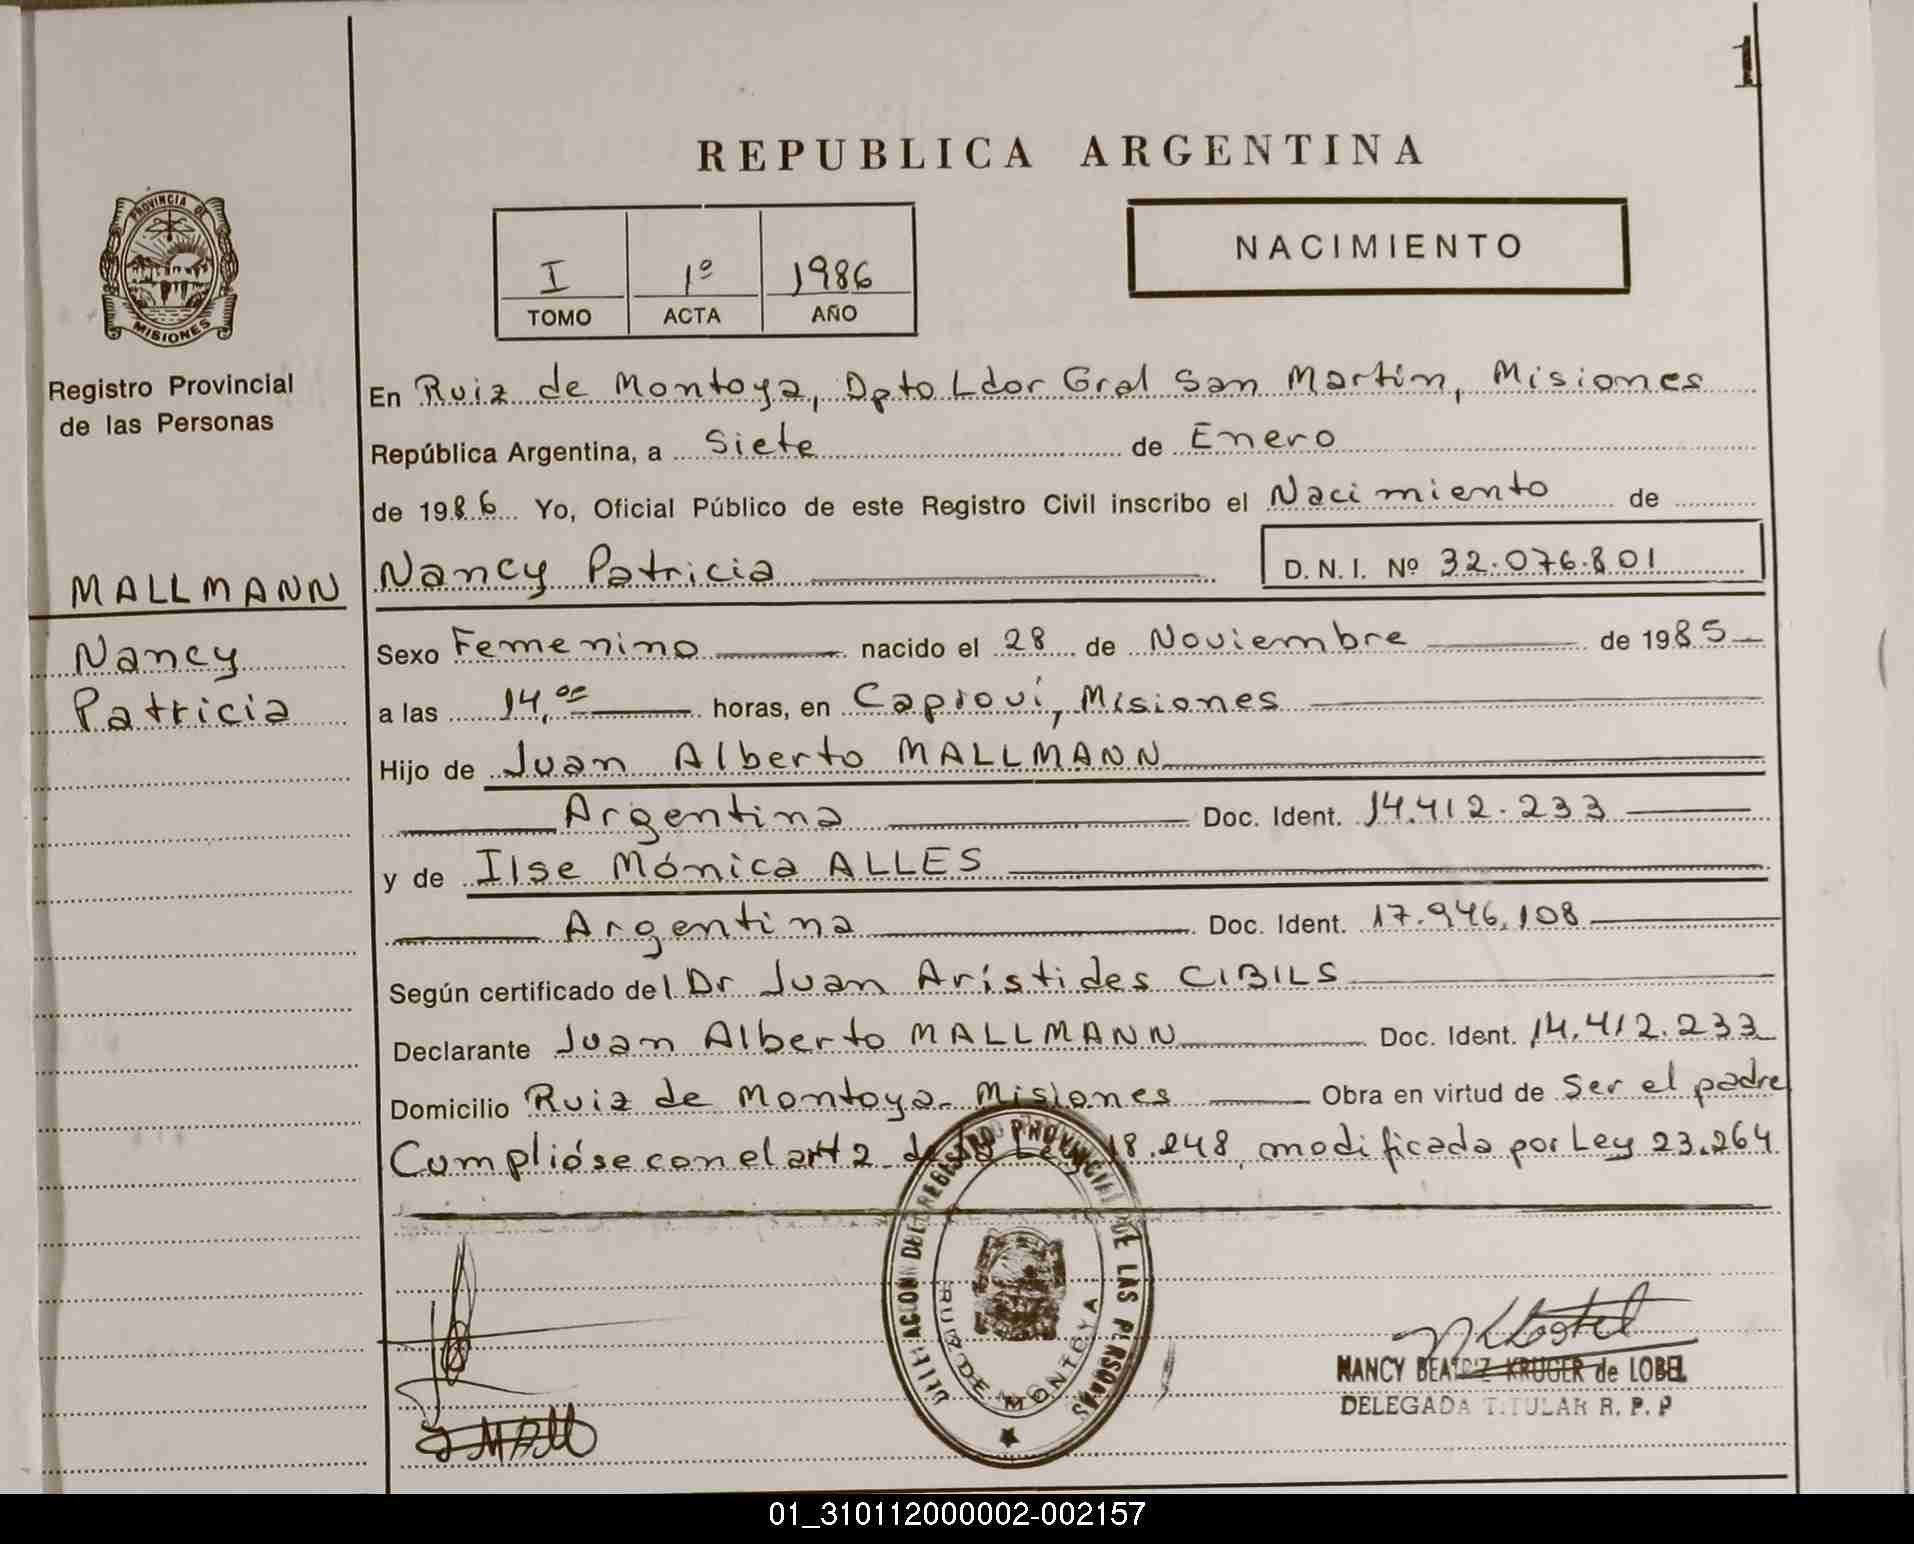 1
REPUBLICA ARGENTINA
PROVINCIA DE
MISIONES
Registro Provincial
de las Personas
I 1º 1986
TOMO ACTA AÑO
NACIMIENTO
En Ruiz de Montoya, Dpto Ldor Gral San Martín, Misiones
República Argentina, a Siete de Enero
de 1986 Yo, Oficial Público de este Registro Civil inscribo el Nacimiento de
MALLMANN
Nancy
Patricia
Nancy Patricia D.N.I. Nº 32.076.801
Sexo Femenino nacido el 28 de Noviembre de 1985
a las 14,00 horas, en Capioví, Misiones
Hijo de Juan Alberto MALLMANN
Argentina Doc. Ident. 14.412.233
y de Ilse Mónica ALLES
Argentina Doc. Ident. 17.946.108
Según certificado del Dr Juan Arístides CIBILS
Declarante Juan Alberto MALLMANN Doc. Ident. 14.412.233
Domicilio Ruiz de Montoya - Misiones Obra en virtud de Ser el padre
Cumplióse con el art 2 de la Ley 18.248, modificada por Ley 23.264
DELEGACION DEL REGISTRO PROVINCIAL DE LAS PERSONAS
RUIZ DE MONTOYA
NANCY BEATRIZ KRUGER de LOBEL
DELEGADA TITULAR R. P. P
01_310112000002-002157